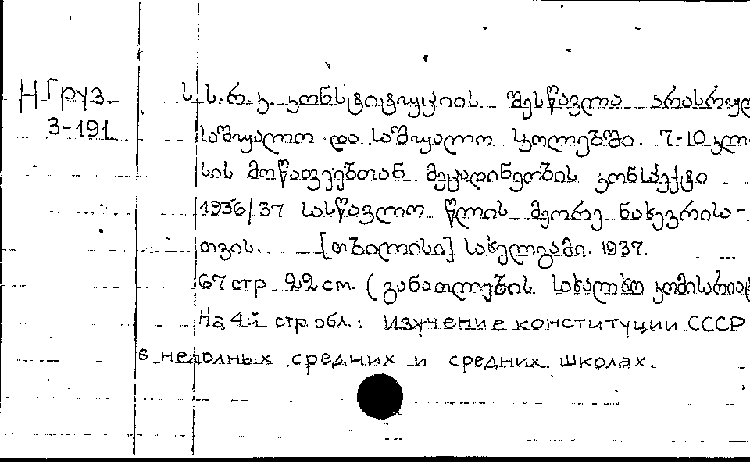 Н Груз
3-191
ს.ს.რ.კ. კონსტიტუციის შესწავლა არასრულ
საშუალო და საშუალო სკოლებში. 7-10 კლა
სის მოწაფეებთან მეცადინეობის კონსპექტი
1936/37 სასწავლო წლის მეორე ნახევრისა-
თვის. [თბილისი] სახელგამი. 1937.
67 стр 22 см. (განათლების სახალხო კომისარიატ
На 4-й стр. обл.: Изучение конституции СССР
в неполных средних и средних школах.